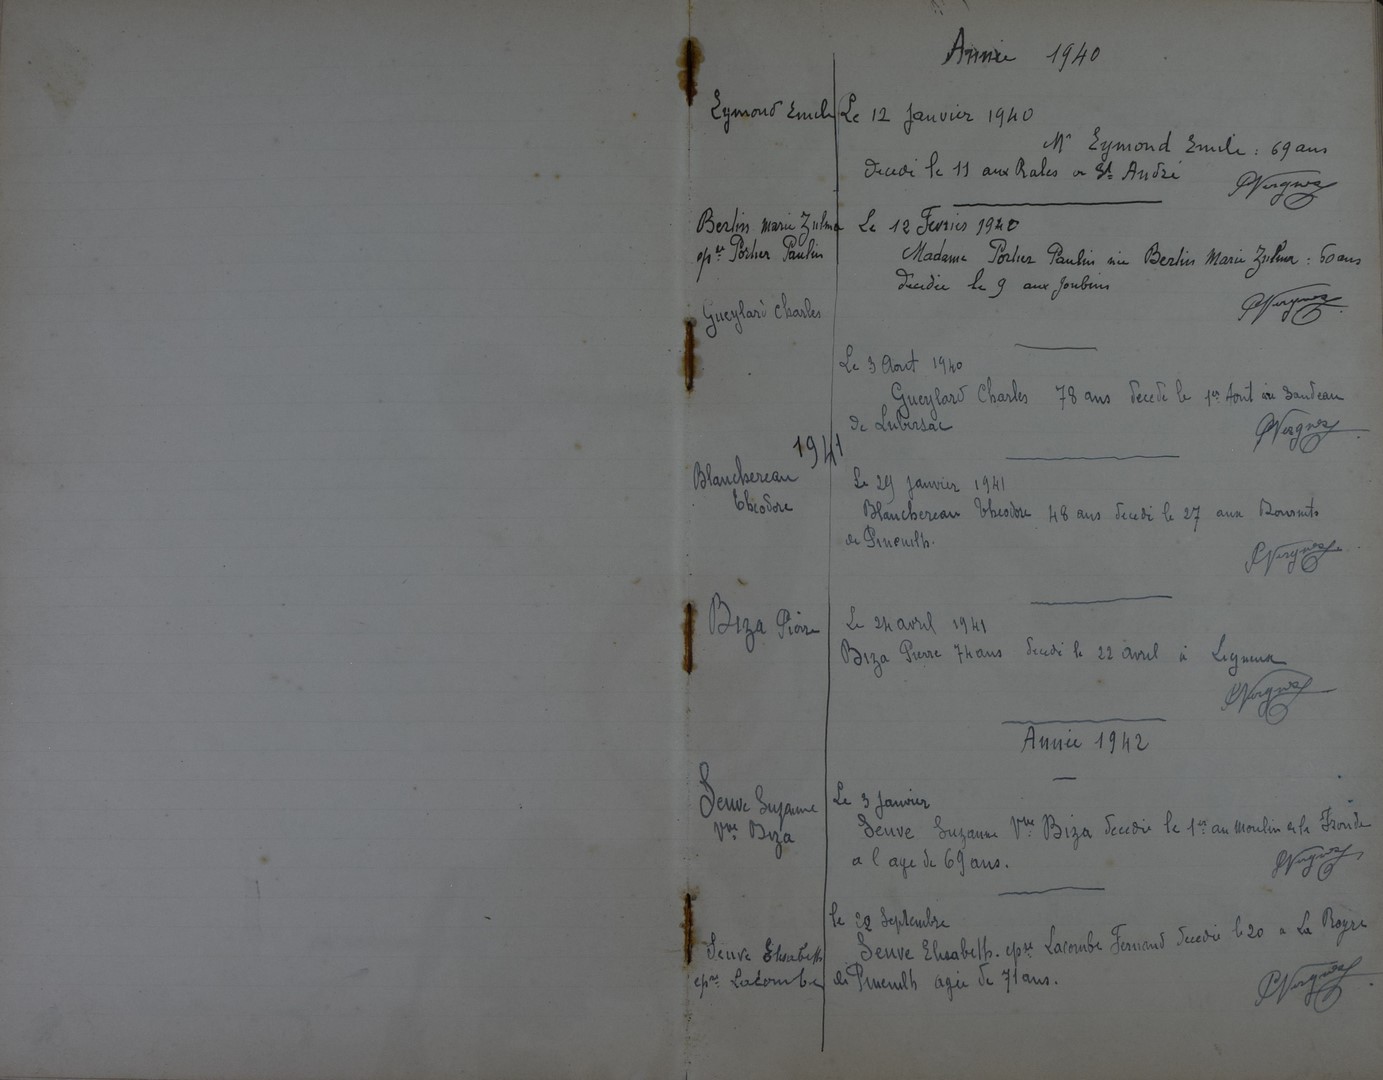 Année 1940
Eymond Emile
Le 12 Janvier 1940
Mr Eymond Emile : 69 ans
décédé le 11 aux Rales de St André
PVergnes
Bertin Marie Zulma
épse Portier Paulin
Le 12 Fevrier 1940
Madame Portier Paulin née Bertin Marie Zulma : 60 ans
décédée le 9 aux Joubins
PVergnes
Gueylard Charles
Le 3 Aout 1940
Gueylard Charles 78 ans décédé le 1er Aout
de Lubersac
PVergnes
1941
Blanchereau
Théodore
Le 29 Janvier 1941
Blanchereau Théodore 48 ans décédé le 27 aux
de Pineuilh.
PVergnes
Biza Pierre
Le 24 avril 1941
Biza Pierre 74 ans décédé le 22 avril à Ligueux
PVergnes
Année 1942
Seuve Suzanne
Vve Biza
Le 3 Janvier
Seuve Suzanne Vve Biza décédée le 1er au Moulin de la
a l'age de 69 ans.
PVergnes
Seuve Elisabeth
épse Lacombe
le 22 Septembre
Seuve Elisabeth. épse Lacombe Fernand décédée le 20 a La Royre
de Pineuilh agée de 71 ans.
PVergnes